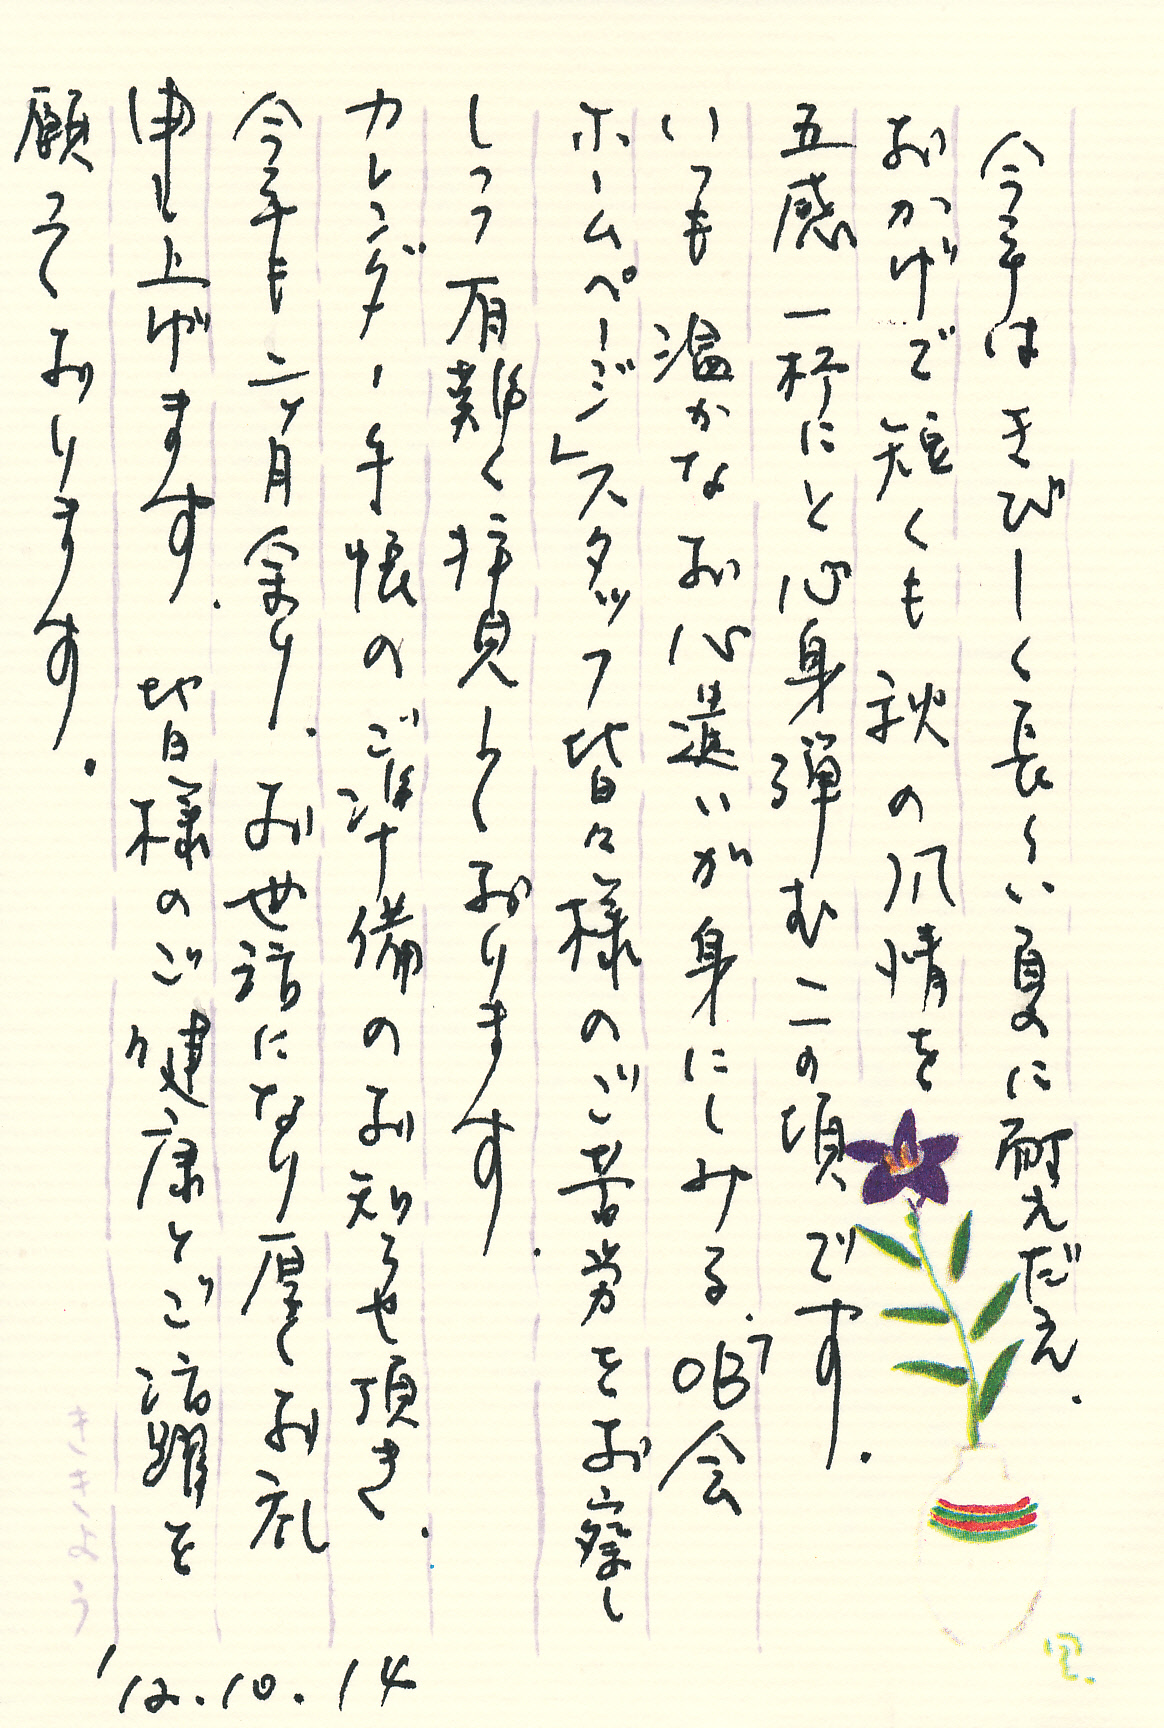 今年はきびしく長〱い夏に耐えだえ.
おかげで短くも秋の風情を
五感一杯にと心身弾むこの頃です.
いつも温かなお心遣いが身にしみる.「OB会
ホームページ」スタッフ皆々様のご苦労をお察し
しつつ有難く拝見しております.
カレンダー手帳のご準備のお知らせ頂き.
今年も二ヶ月余り.お世話になり厚くお礼
申し上げます.皆様のご健康とご活躍を
願っております.
'12.10.14
ききょう